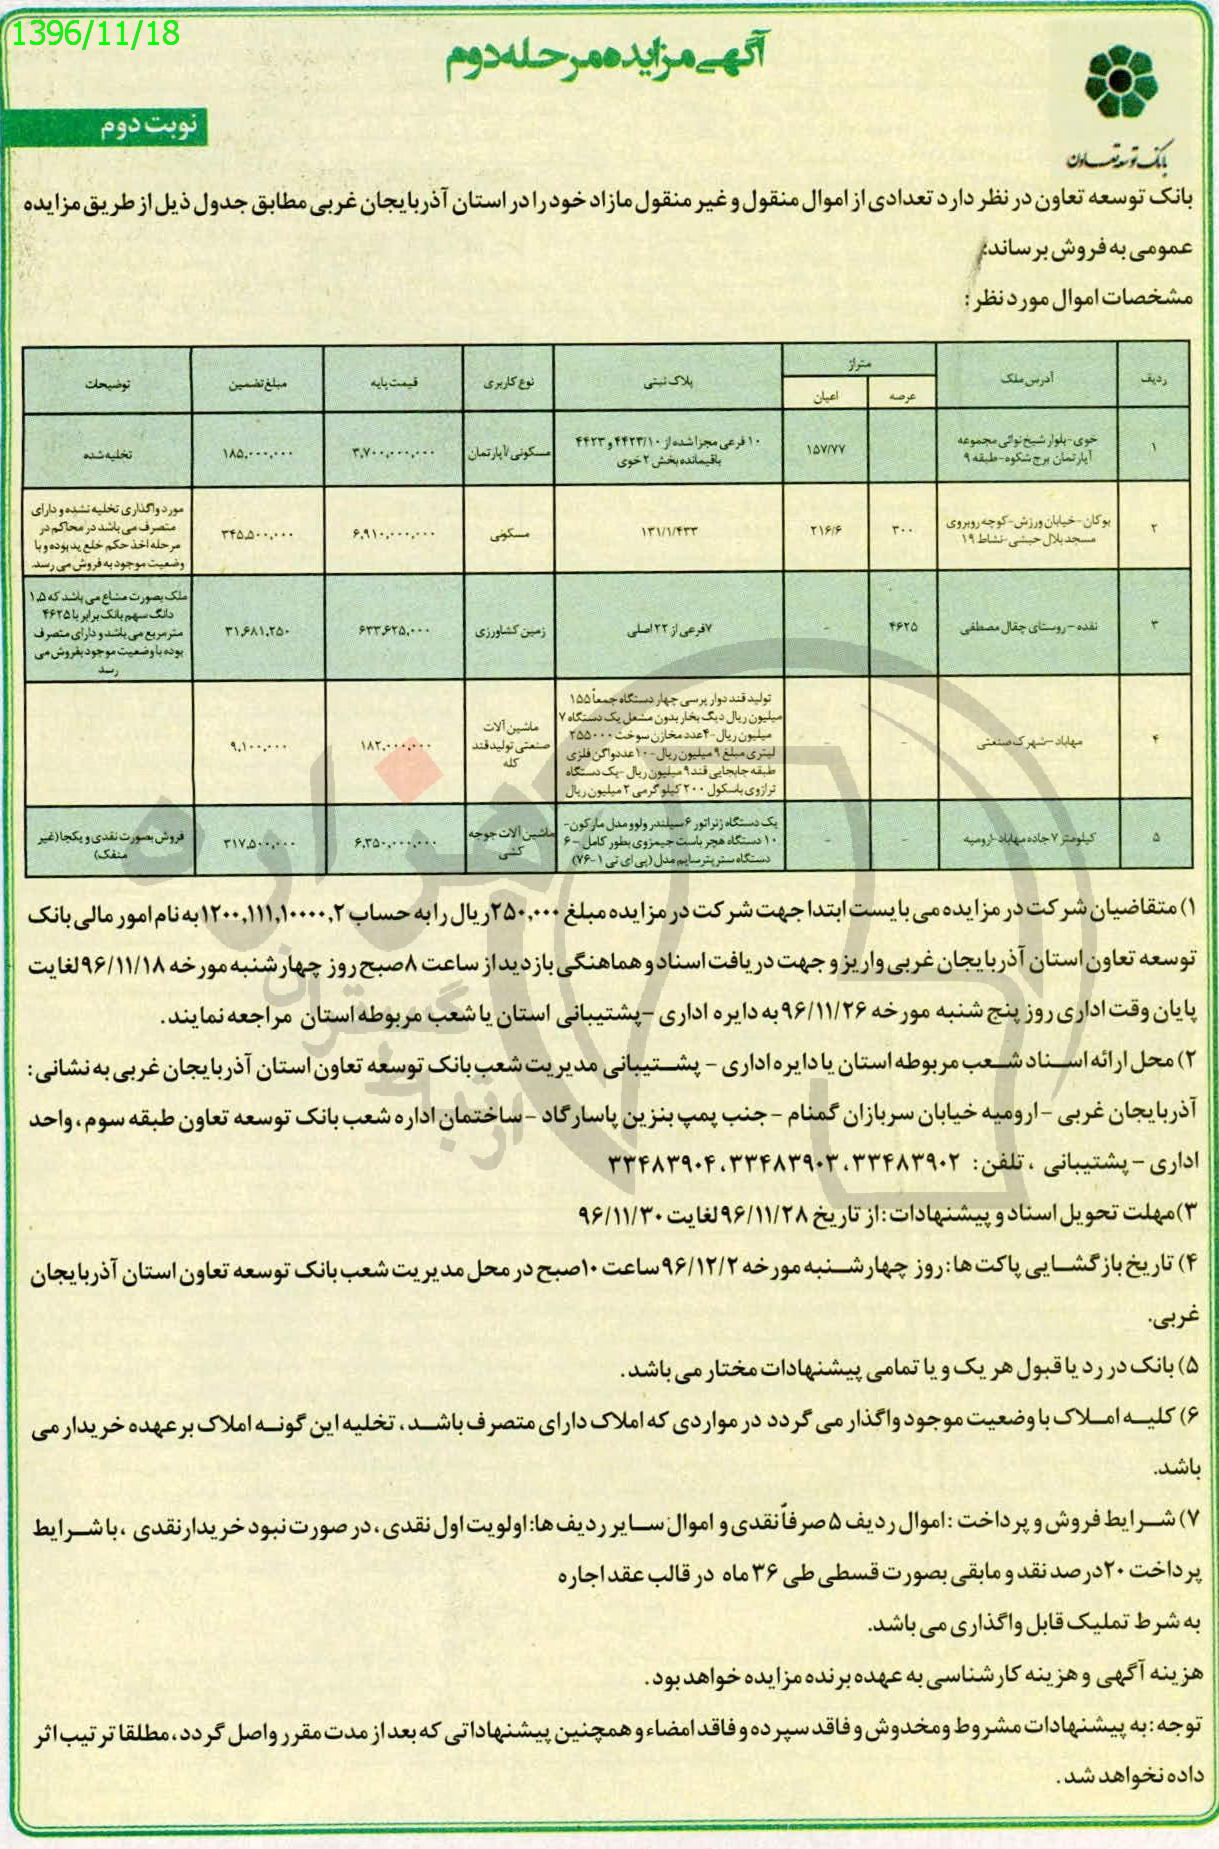 1396/11/18
آگهی مزایده مرحله دوم
بانک توسعه تعاون
نوبت دوم
بانک توسعه تعاون در نظر دارد تعدادی از اموال منقول و غیر منقول مازاد خود را در استان آذربایجان غربی مطابق جدول ذیل از طریق مزایده
عمومی به فروش برساند:
مشخصات اموال مورد نظر:
ردیف آدرس ملک متراژ پلاک ثبتی نوع کاربری قیمت پایه مبلغ تضمین توضیحات
عرصه اعیان
۱ خوی-بلوار شیخ نوائی مجموعه ۱۵۷/۷۷ ۱۰ فرعی مجزا شده از ۴۴۲۳/۱۰ و ۴۴۲۳ مسکونی/آپارتمان ۳,۷۰۰,۰۰۰,۰۰۰ ۱۸۵,۰۰۰,۰۰۰ تخلیه شده
آپارتمان برج شکوه-طبقه ۹ باقیمانده بخش ۲ خوی
۲ بوکان-خیابان ورزش-کوچه روبروی ۳۰۰ ۲۱۶/۶ ۱۳۱/۱/۴۳۳ مسکونی ۶,۹۱۰,۰۰۰,۰۰۰ ۳۴۵,۵۰۰,۰۰۰ مورد واگذاری تخلیه نشده و دارای
مسجد بلال حبشی-نشاط ۱۹ متصرف می باشد در محاکم در
مرحله اخذ حکم خلع ید بوده و با
وضعیت موجود به فروش می رسد.
۳ نقده-روستای چقال مصطفی ۴۶۲۵ - ۷فرعی از ۲۲ اصلی زمین کشاورزی ۶۳۳,۶۲۵,۰۰۰ ۳۱,۶۸۱,۲۵۰ ملک بصورت مشاع می باشد که ۱,۵
دانگ سهم بانک برابر با ۴۶۲۵
متر مربع می باشد و دارای متصرف
بوده با وضعیت موجود بفروش می
رسد
۴ مهاباد-شهرک صنعتی - - تولید قند دوار پرسی چهار دستگاه جمعاً ۱۵۵ ماشین آلات ۱۸۲,۰۰۰,۰۰۰ ۹,۱۰۰,۰۰۰
میلیون ریال دیگ بخار بدون مشعل یک دستگاه ۷ صنعتی تولید قند
میلیون ریال-۴عدد مخازن سوخت ۲۵۵۰۰۰ کله
لیتری مبلغ ۹ میلیون ریال-۱۰عدد واگن فلزی
طبقه جابجایی قند ۹ میلیون ریال-یک دستگاه
ترازوی باسکول ۲۰۰ کیلو گرمی ۲ میلیون ریال
۵ کیلومتر ۷ جاده مهاباد-ارومیه - - یک دستگاه ژنراتور ۶سیلندر ولوو مدل مارکون- ماشین آلات جوجه ۶,۳۵۰,۰۰۰,۰۰۰ ۳۱۷,۵۰۰,۰۰۰ فروش بصورت نقدی و یکجا(غیر
۱۰ دستگاه هچر باست جیمزوی بطور کامل-۶ کشی منفک)
دستگاه ستر پترسایم مدل (پی ای تی ۱-۷۶)
۱) متقاضیان شرکت در مزایده می بایست ابتدا جهت شرکت در مزایده مبلغ ۲۵۰,۰۰۰ریال را به حساب ۱۲۰۰,۱۱۱,۱۰۰۰۰,۲ به نام امور مالی بانک
توسعه تعاون استان آذربایجان غربی واریز و جهت دریافت اسناد و هماهنگی بازدید از ساعت ۸صبح روز چهارشنبه مورخه ۹۶/۱۱/۱۸لغایت
پایان وقت اداری روز پنج شنبه مورخه ۹۶/۱۱/۲۶به دایره اداری -پشتیبانی استان یا شعب مربوطه استان مراجعه نمایند.
۲) محل ارائه اسناد شعب مربوطه استان یا دایره اداری - پشتیبانی مدیریت شعب بانک توسعه تعاون استان آذربایجان غربی به نشانی:
آذربایجان غربی -ارومیه خیابان سربازان گمنام -جنب پمپ بنزین پاسارگاد -ساختمان اداره شعب بانک توسعه تعاون طبقه سوم، واحد
اداری - پشتیبانی ، تلفن: ۳۳۴۸۳۹۰۲، ۳۳۴۸۳۹۰۳، ۳۳۴۸۳۹۰۴
۳)مهلت تحویل اسناد و پیشنهادات:از تاریخ ۹۶/۱۱/۲۸لغایت ۹۶/۱۱/۳۰
۴) تاریخ بازگشایی پاکت ها: روز چهارشنبه مورخه ۹۶/۱۲/۲ساعت ۱۰صبح در محل مدیریت شعب بانک توسعه تعاون استان آذربایجان
غربی.
۵) بانک در رد یا قبول هر یک و یا تمامی پیشنهادات مختار می باشد.
۶) کلیه املاک با وضعیت موجود واگذار می گردد در مواردی که املاک دارای متصرف باشد، تخلیه این گونه املاک بر عهده خریدار می
باشد.
۷) شرایط فروش و پرداخت :اموال ردیف ۵صرفاً نقدی و اموال سایر ردیف ها: اولویت اول نقدی، در صورت نبود خریدار نقدی ،با شرایط
پرداخت ۲۰درصد نقد و مابقی بصورت قسطی طی ۳۶ ماه در قالب عقد اجاره
به شرط تملیک قابل واگذاری می باشد.
هزینه آگهی و هزینه کارشناسی به عهده برنده مزایده خواهد بود.
توجه:به پیشنهادات مشروط و مخدوش و فاقد سپرده و فاقد امضاء و همچنین پیشنهاداتی که بعد از مدت مقرر واصل گردد، مطلقا ترتیب اثر
داده نخواهد شد.